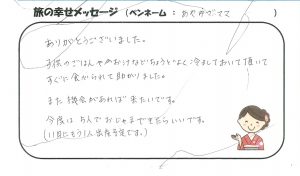 旅の幸せメッセージ（ペンネーム：あやかでママ）
ありがとうございました。
子供のごはんやおかずなどちょうどよく冷ましておいて頂いて
すぐに食べられて助かりました。
また機会があれば来たいです。
今度は5人でおじゃまできたらいいです。
(11月にもう1人出産予定です。)